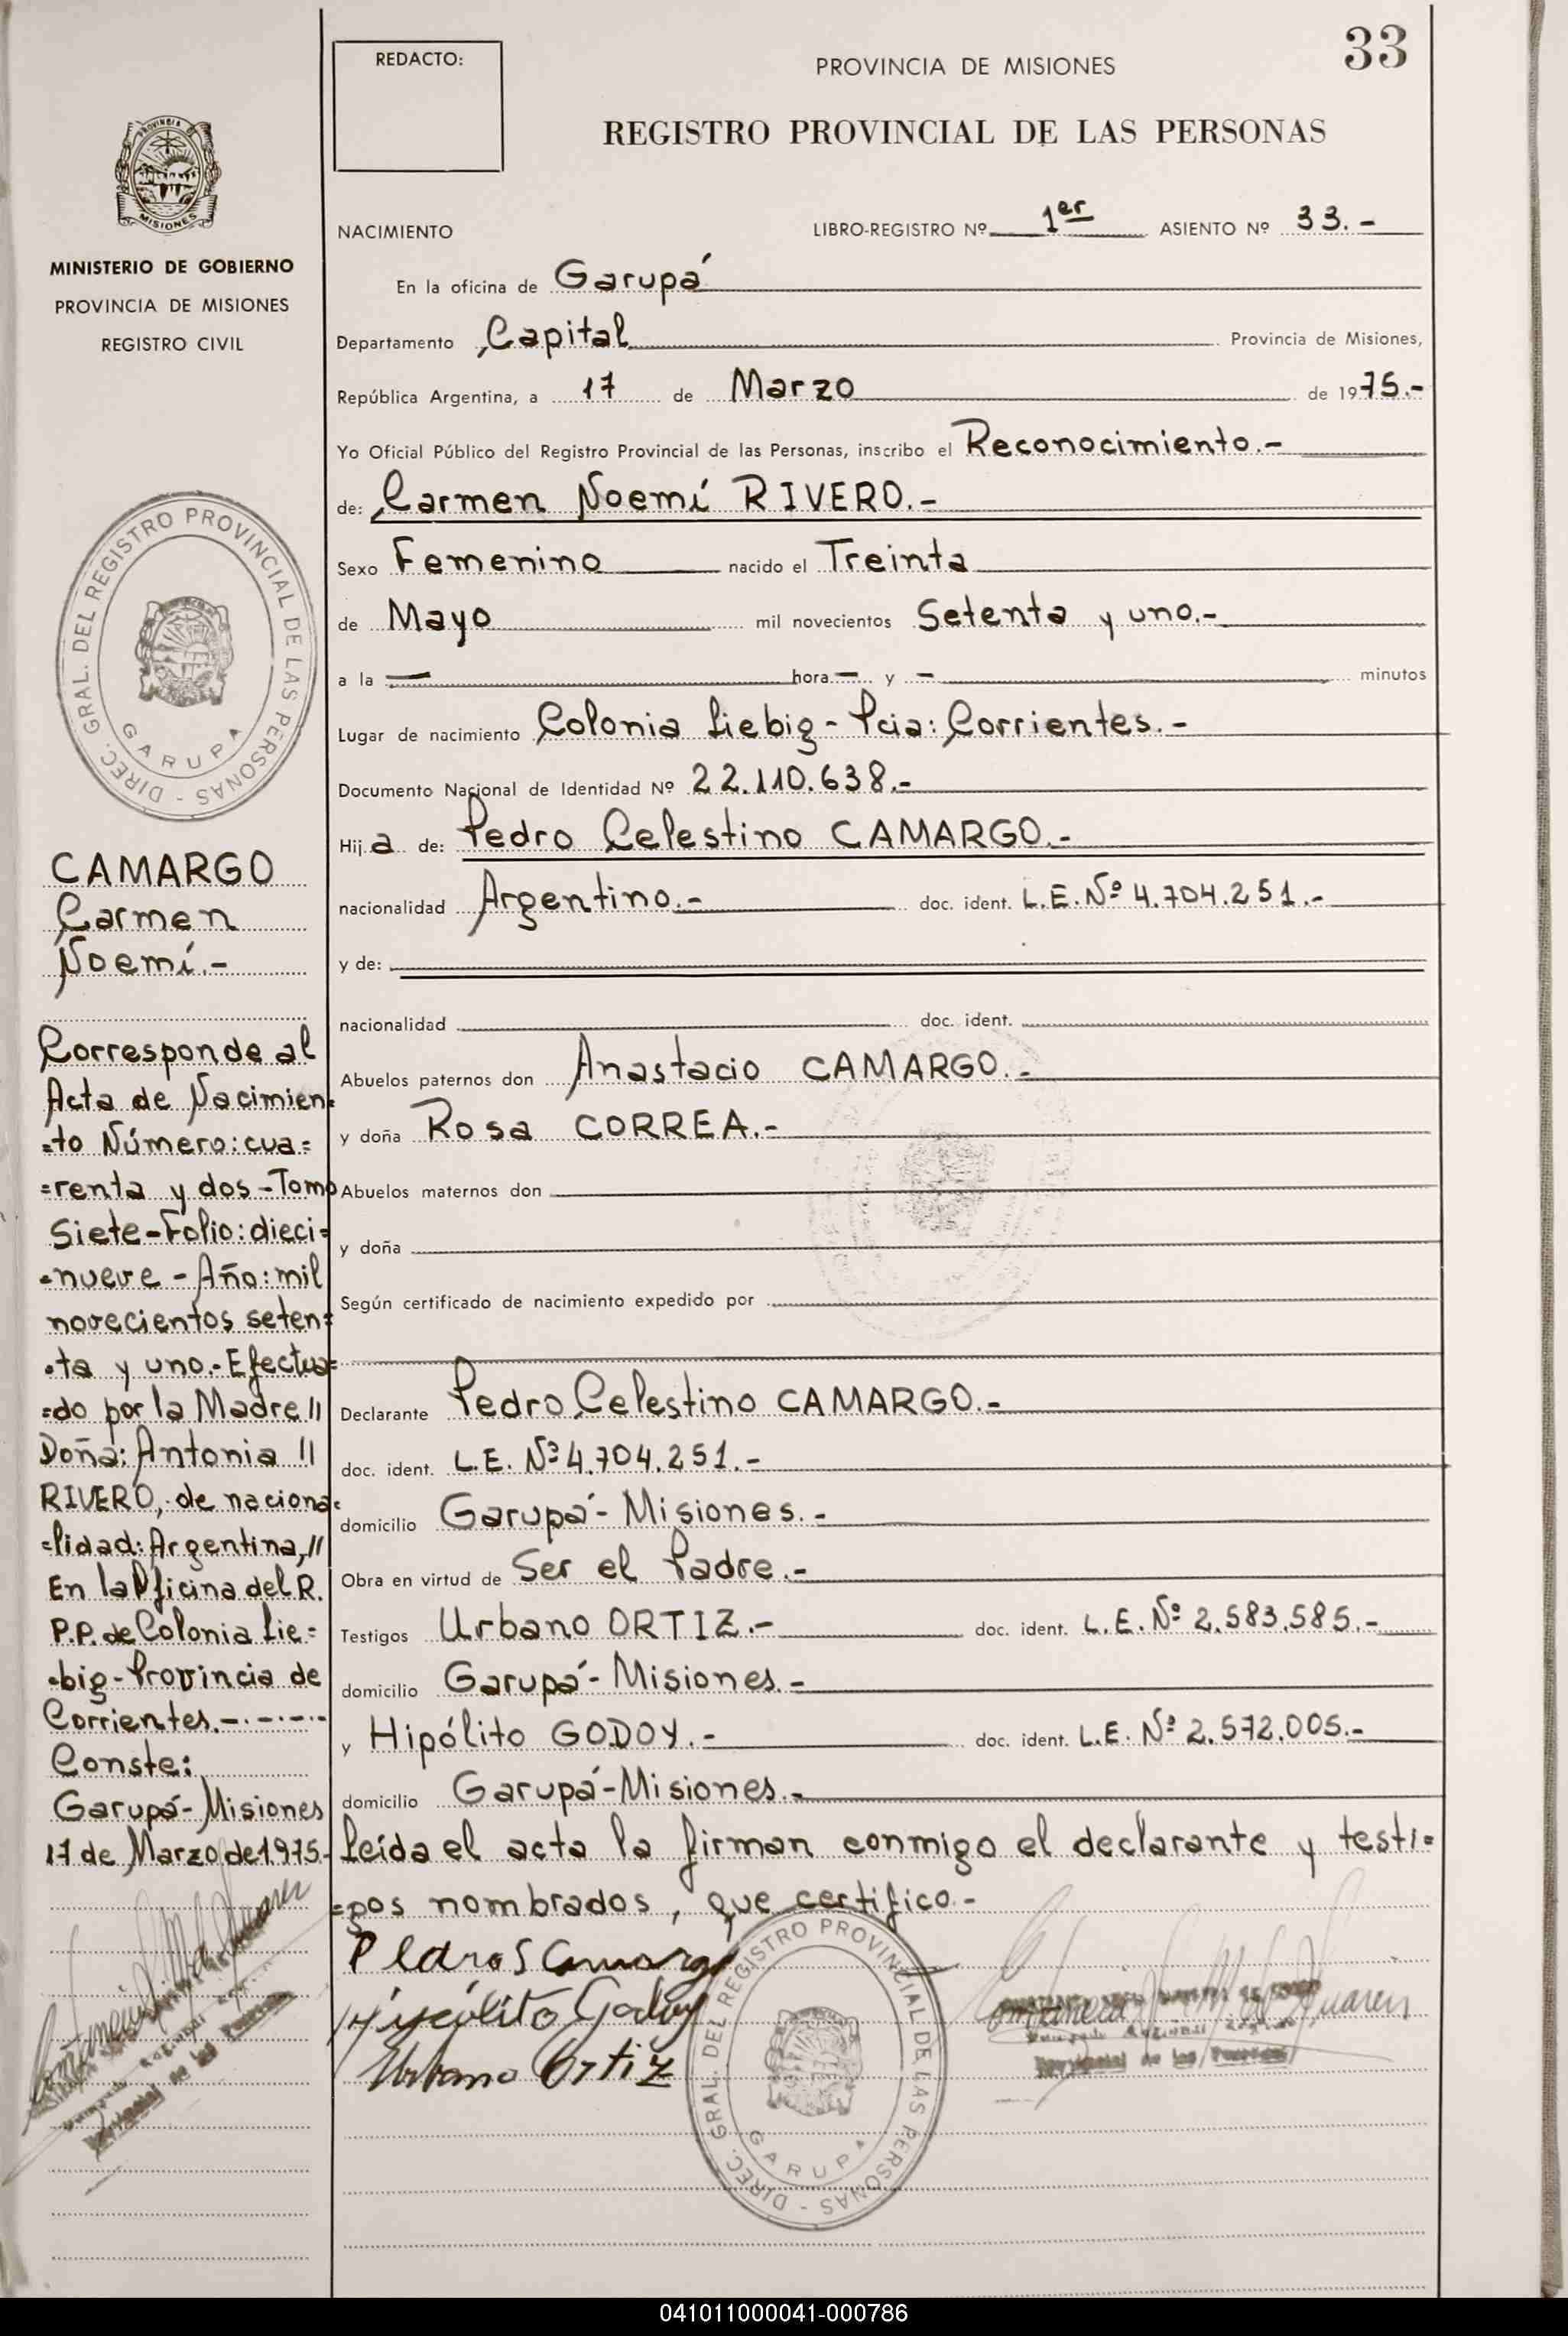 33
REDACTO:
PROVINCIA DE MISIONES
REGISTRO PROVINCIAL DE LAS PERSONAS
PROVINCIA DE
MISIONES
MINISTERIO DE GOBIERNO
PROVINCIA DE MISIONES
REGISTRO CIVIL
DIREC. GRAL. DEL REGISTRO PROVINCIAL DE LAS PERSONAS -
GARUPA
CAMARGO
Carmen
Noemí.-
Corresponde al
Acta de Nacimien=
=to Número: cua=
=renta y dos - Tomo
Siete - Folio: dieci=
=nueve - Año: mil
novecientos seten=
=ta y uno.- Efectua=
=do por la Madre //
Doña: Antonia //
RIVERO, de naciona=
=lidad: Argentina, //
En la Oficina del R.
P.P. de Colonia Lie=
=big - Provincia de
Corrientes.-.-.-.-
Conste:
Garupá - Misiones
17 de Marzo de 1975.-
NACIMIENTO LIBRO-REGISTRO Nº 1er ASIENTO Nº 33.-
En la oficina de Garupá
Departamento Capital Provincia de Misiones,
República Argentina, a 17 de Marzo de 1975.-
Yo Oficial Público del Registro Provincial de las Personas, inscribo el Reconocimiento.-
de: Carmen Noemí RIVERO.-
Sexo Femenino nacido el Treinta
de Mayo mil novecientos Setenta y uno.-
a la — hora — y - minutos
Lugar de nacimiento Colonia Liebig - Pcia: Corrientes.-
Documento Nacional de Identidad Nº 22.110.638.-
Hija de: Pedro Celestino CAMARGO.-
nacionalidad Argentino.- doc. ident. L.E. Nº 4.704.251.-
y de:
nacionalidad doc. ident.
Abuelos paternos don Anastacio CAMARGO.-
y doña Rosa CORREA.-
Abuelos maternos don
y doña
Según certificado de nacimiento expedido por
Declarante Pedro Celestino CAMARGO.-
doc. ident. L.E. Nº 4.704.251.-
domicilio Garupá - Misiones.-
Obra en virtud de Ser el Padre.-
Testigos Urbano ORTIZ.- doc. ident. L.E. Nº 2.583.585.-
domicilio Garupá - Misiones.-
y Hipólito GODOY.- doc. ident. L.E. Nº 2.572.005.-
domicilio Garupá - Misiones.-
Leída el acta la firman conmigo el declarante y testi=
=gos nombrados, que certifico.-
Hipólito Godoy
Urbano Ortiz
DIREC. GRAL. DEL REGISTRO PROVINCIAL DE LAS PERSONAS -
GARUPA
041011000041-000786